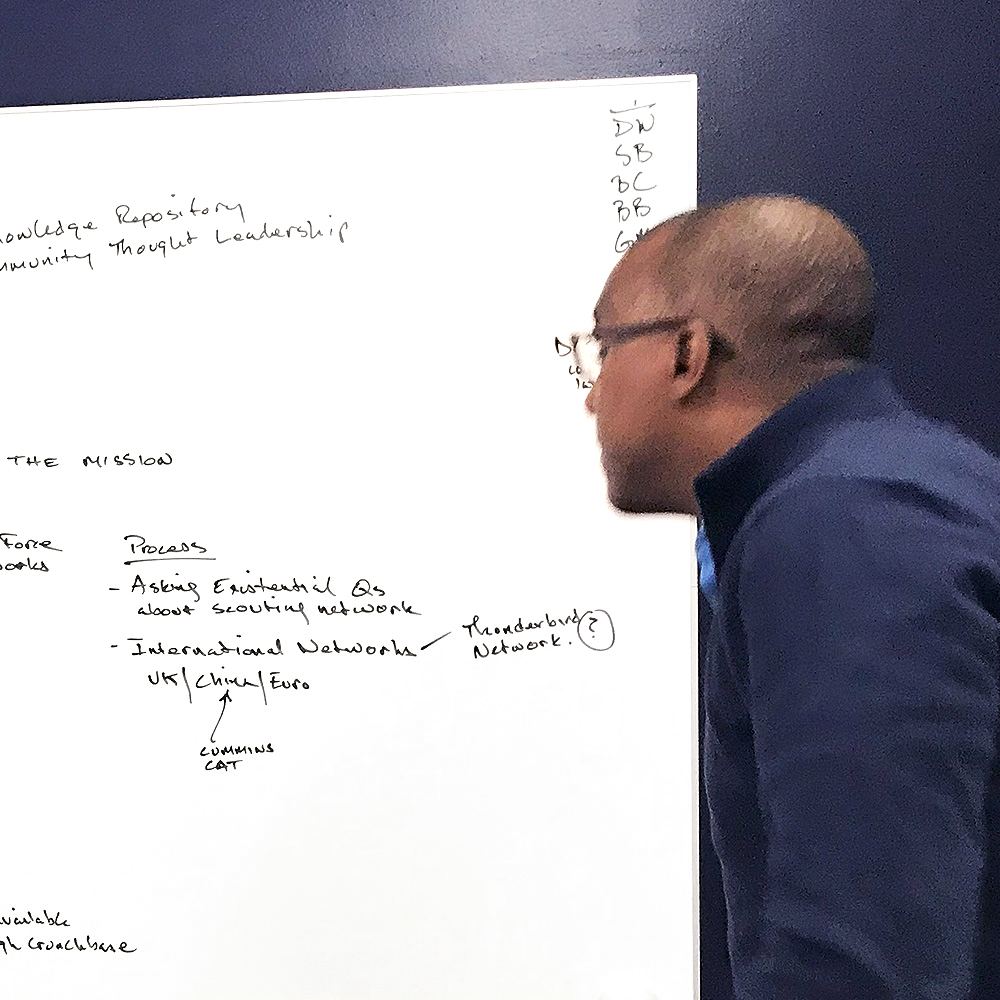 DW
SB
BC
BB
nowledge Repository
mmunity Thought Leadership
THE MISSION
Force
orks
Process
- Asking Existential Qs
about scouting network
- International Networks
Thunderbird
Network. ?
UK/China/Euro
CUMMINS
CAT
vailable
gh Crunchbase